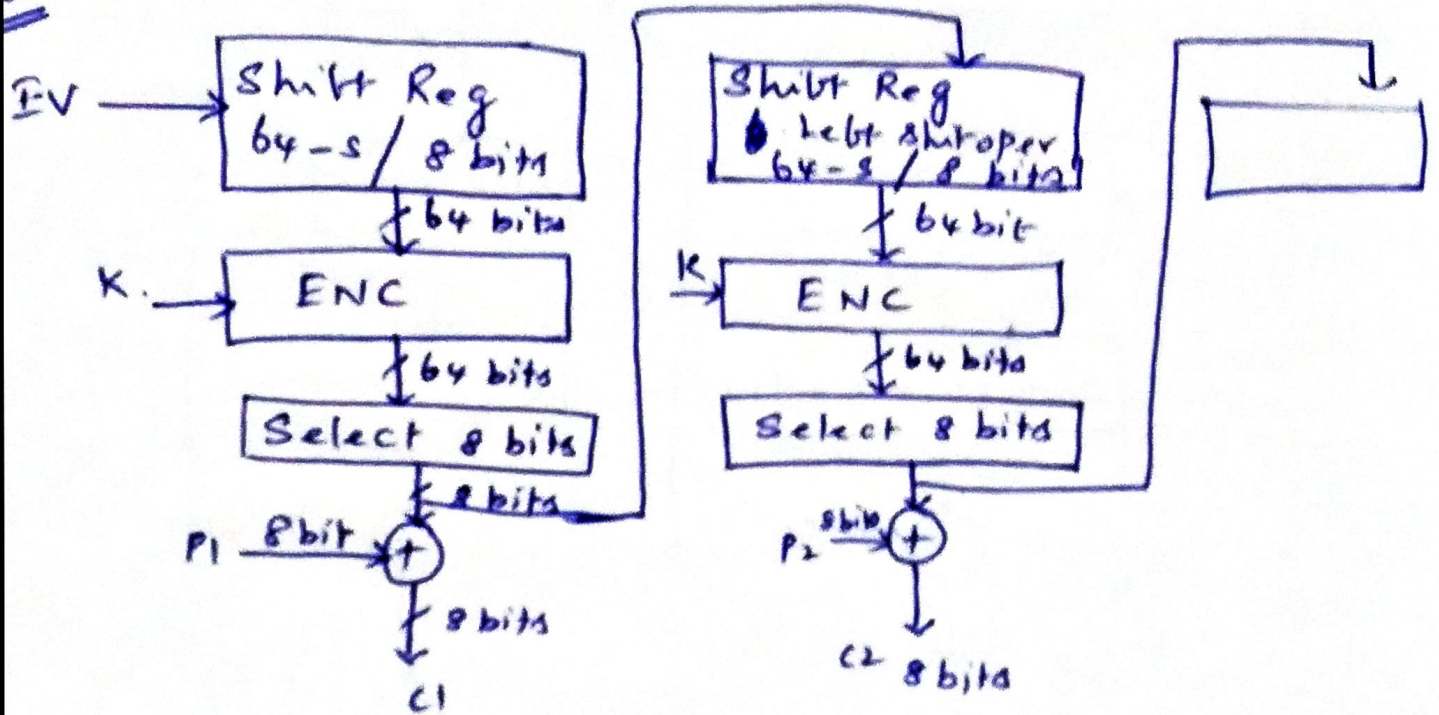 IV
Shift Reg
64-s / 8 bits
64 bits
K.
ENC
64 bits
Select 8 bits
8 bits
P1 8 bit
+
8 bits
C1
Shift Reg
Left
64-s / 8 bits
64 bit
K
ENC
64 bits
Select 8 bits
P2 8 bits
+
C2 8 bits